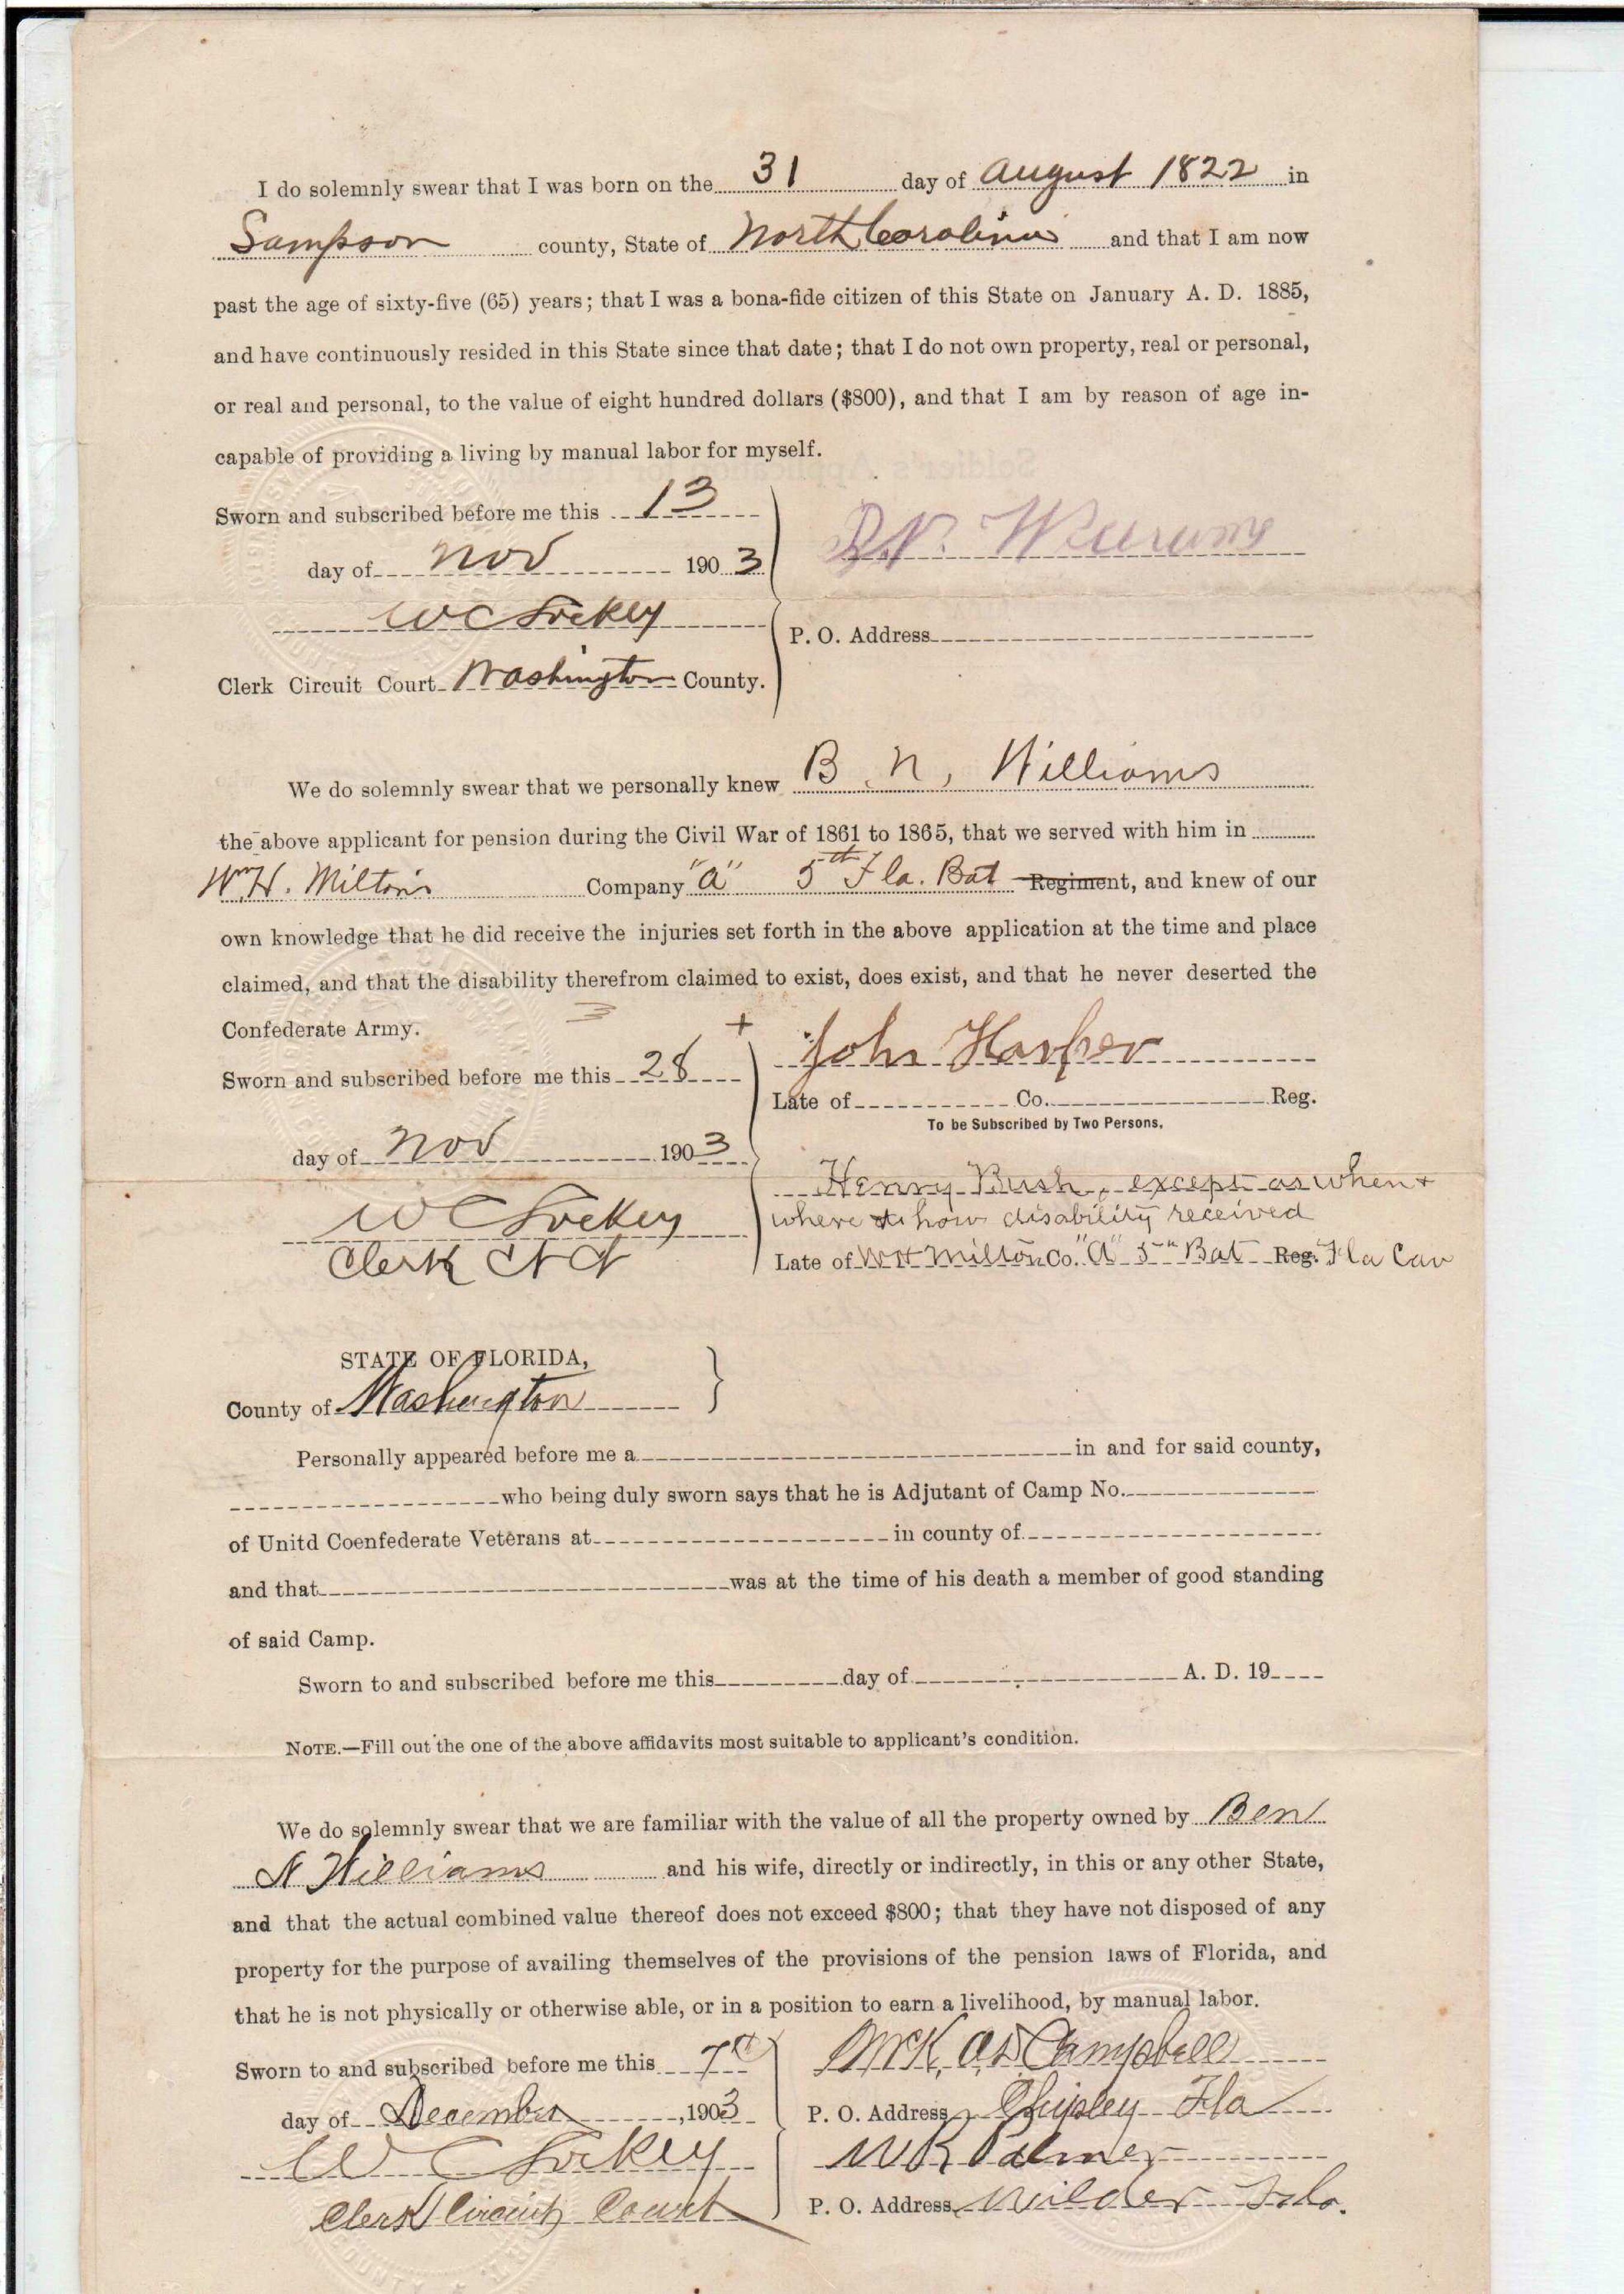 I do solemnly swear that I was born on the 31 day of August 1822 in
Sampson county, State of North Carolina and that I am now
past the age of sixty-five (65) years; that I was a bona-fide citizen of this State on January A. D. 1885,
and have continuously resided in this State since that date; that I do not own property, real or personal,
or real and personal, to the value of eight hundred dollars ($800), and that I am by reason of age in-
capable of providing a living by manual labor for myself.
Sworn and subscribed before me this 13
day of Nov 1903
W C Lockey
Clerk Circuit Court Washington County.
B. N. Williams
P. O. Address
We do solemnly swear that we personally knew B. N. Williams
the above applicant for pension during the Civil War of 1861 to 1865, that we served with him in
Wm H. Milton's Company "A" 5th Fla. Bat Regiment, and knew of our
own knowledge that he did receive the injuries set forth in the above application at the time and place
claimed, and that the disability therefrom claimed to exist, does exist, and that he never deserted the
Confederate Army.
Sworn and subscribed before me this 28
day of Nov 1903
W C Lockey
Clerk
+ John Harper
Late of Co. Reg.
To be Subscribed by Two Persons.
Henry Bush, except as when +
where & how disability received
Late of W H Milton Co. "A" 5th Bat Reg. Fla Cav
STATE OF FLORIDA,
County of Washington
Personally appeared before me a in and for said county,
who being duly sworn says that he is Adjutant of Camp No.
of Unitd Coenfederate Veterans at in county of
and that was at the time of his death a member of good standing
of said Camp.
Sworn to and subscribed before me this day of A. D. 19
NOTE.—Fill out the one of the above affidavits most suitable to applicant's condition.
We do solemnly swear that we are familiar with the value of all the property owned by Ben
N Williams and his wife, directly or indirectly, in this or any other State,
and that the actual combined value thereof does not exceed $800; that they have not disposed of any
property for the purpose of availing themselves of the provisions of the pension laws of Florida, and
that he is not physically or otherwise able, or in a position to earn a livelihood, by manual labor.
Sworn to and subscribed before me this 7th
day of December, 1903
W C Lockey
Clerk Circuit Court
Campbell
P. O. Address Chipley Fla
W R Palmer
P. O. Address Wilder Fla.